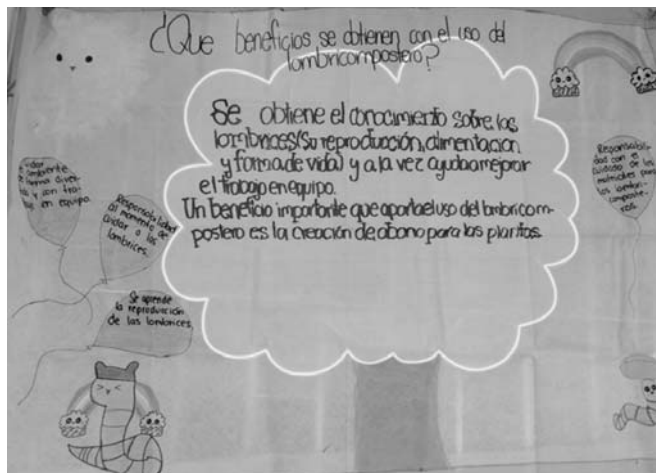 ¿Que beneficios se obtienen con el uso del
lombricompostero?
Se obtiene el conocimiento sobre las
lombrices(su reproducción, alimentacion
y forma de vida) y a la vez ayuda a mejorar
el trabajo en equipo.
Un beneficio importante que aporta el uso del lombricom-
postero es la creación de abono para las plantas.
ambiente
de forma diver-
y con tra-
en equipo.
Responsabilidad
al momento de
cuidar a las
lombrices.
Se aprende
la reproducción
de las lombrices.
Responsabili-
dad con el
cuidado de los
materiales para
las lombri-
composte-
ras.